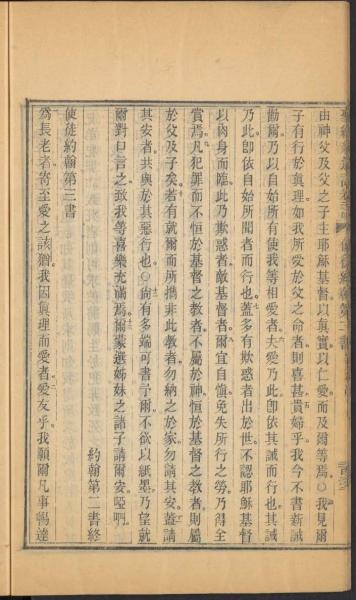 由神父及父之子主耶穌基督以真實以仁愛而及爾等焉。○我見爾
子有行於真理如我所受於父之命者則喜甚。貴婦乎我今不書新誡
勸爾乃以自始所有使我等相愛者。夫愛乃此即依其誡而行也其誡
乃此即依自始所聞者而行也。蓋多有欺惑者出於世不認耶穌基督
以肉身而臨此乃欺惑者敵基督者。爾宜自慎免失所行之勞乃得全
賞焉。凡犯罪而不恒於基督之教者不屬於神恒於基督之教者則屬
於父及子矣。若有就爾而所攜非此教者勿納之於家勿請其安。蓋請
其安者共與於其惡行也。○尚有多端可書予爾不欲以紙墨乃望就
爾對口言之致我等喜樂充滿焉。爾蒙選姊妹之諸子請爾安啞
約翰第二書終
使徒約翰第三書
為長老者寄至愛之該猶我因真理而愛者。愛友乎我願爾凡事暢達